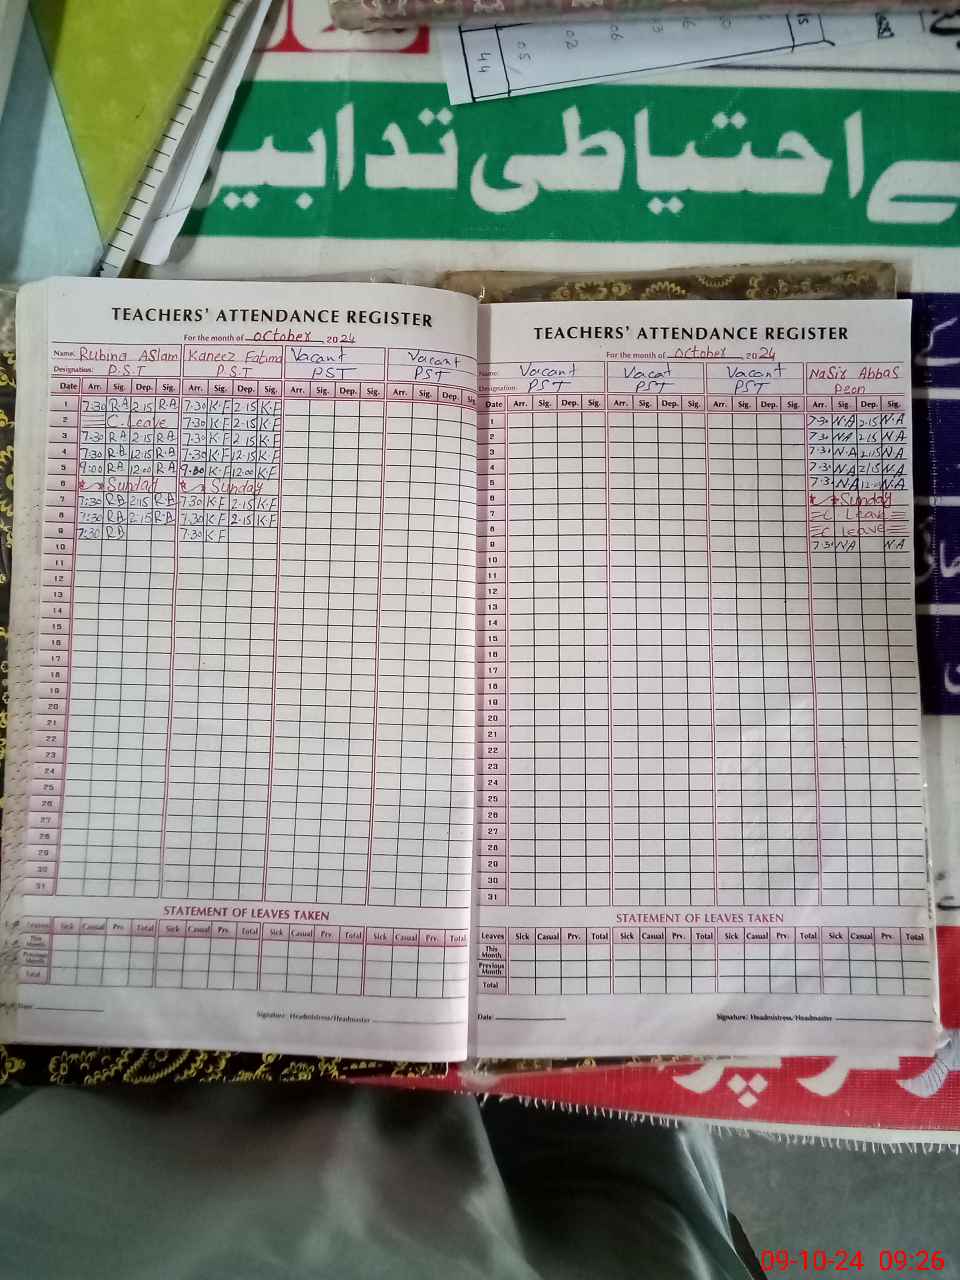 44
05/
02
06
احتیاطی تدابیر
TEACHERS' ATTENDANCE REGISTER
For the month of October 2024
Name: Rubina ASlam Kaneez Fatima Vacant Vacant
Designation: P.S.T P.S.T PST PST
Date Arr. Sig. Dep. Sig. Arr. Sig. Dep. Sig. Arr. Sig. Dep. Sig. Arr. Sig. Dep. Sig.
1 7:30 R.A 2:15 R.A 7:30 K.F 2:15 K.F
2 C.Leave 7:30 K.F 2:15 K.F
3 7:30 R.A 2:15 R.A 7:30 K.F 2:15 K.F
4 7:30 R.A 12:15 R.A 7:30 K.F 12:15 K.F
5 9:00 R.A 12:00 R.A 9:00 K.F 12:00 K.F
6 Sunday Sunday
7 7:30 R.A 2:15 R.A 7:30 K.F 2:15 K.F
8 7:30 R.A 2:15 R.A 7:30 K.F 2:15 K.F
9 7:30 R.A 7:30 K.F
10
11
12
13
14
15
16
17
18
19
20
21
22
23
24
25
26
27
28
29
30
31
STATEMENT OF LEAVES TAKEN
Leaves Sick Casual Prv. Total Sick Casual Prv. Total Sick Casual Prv. Total Sick Casual Prv. Total
This Month
Previous Month
Total
Signature: Headmistress/Headmaster
TEACHERS' ATTENDANCE REGISTER
For the month of October 2024
Name: Vacant Vacat Vacant NaSir AbbaS
Designation: PST PST PST Peon
Date Arr. Sig. Dep. Sig. Arr. Sig. Dep. Sig. Arr. Sig. Dep. Sig. Arr. Sig. Dep. Sig.
1 7:30 N.A 2:15 N.A
2 7:30 N.A 2:15 N.A
3 7:30 N.A 2:15 N.A
4 7:30 N.A 2:15 N.A
5 7:30 N.A N.A
6 Sunday
7 C Leave
8 C Leave
9 7:30 N.A N.A
10
11
12
13
14
15
16
17
18
19
20
21
22
23
24
25
26
27
28
29
30
31
STATEMENT OF LEAVES TAKEN
Leaves Sick Casual Prv. Total Sick Casual Prv. Total Sick Casual Prv. Total Sick Casual Prv. Total
This Month
Previous Month
Total
Date: Signature: Headmistress/Headmaster
09-10-24 09:26